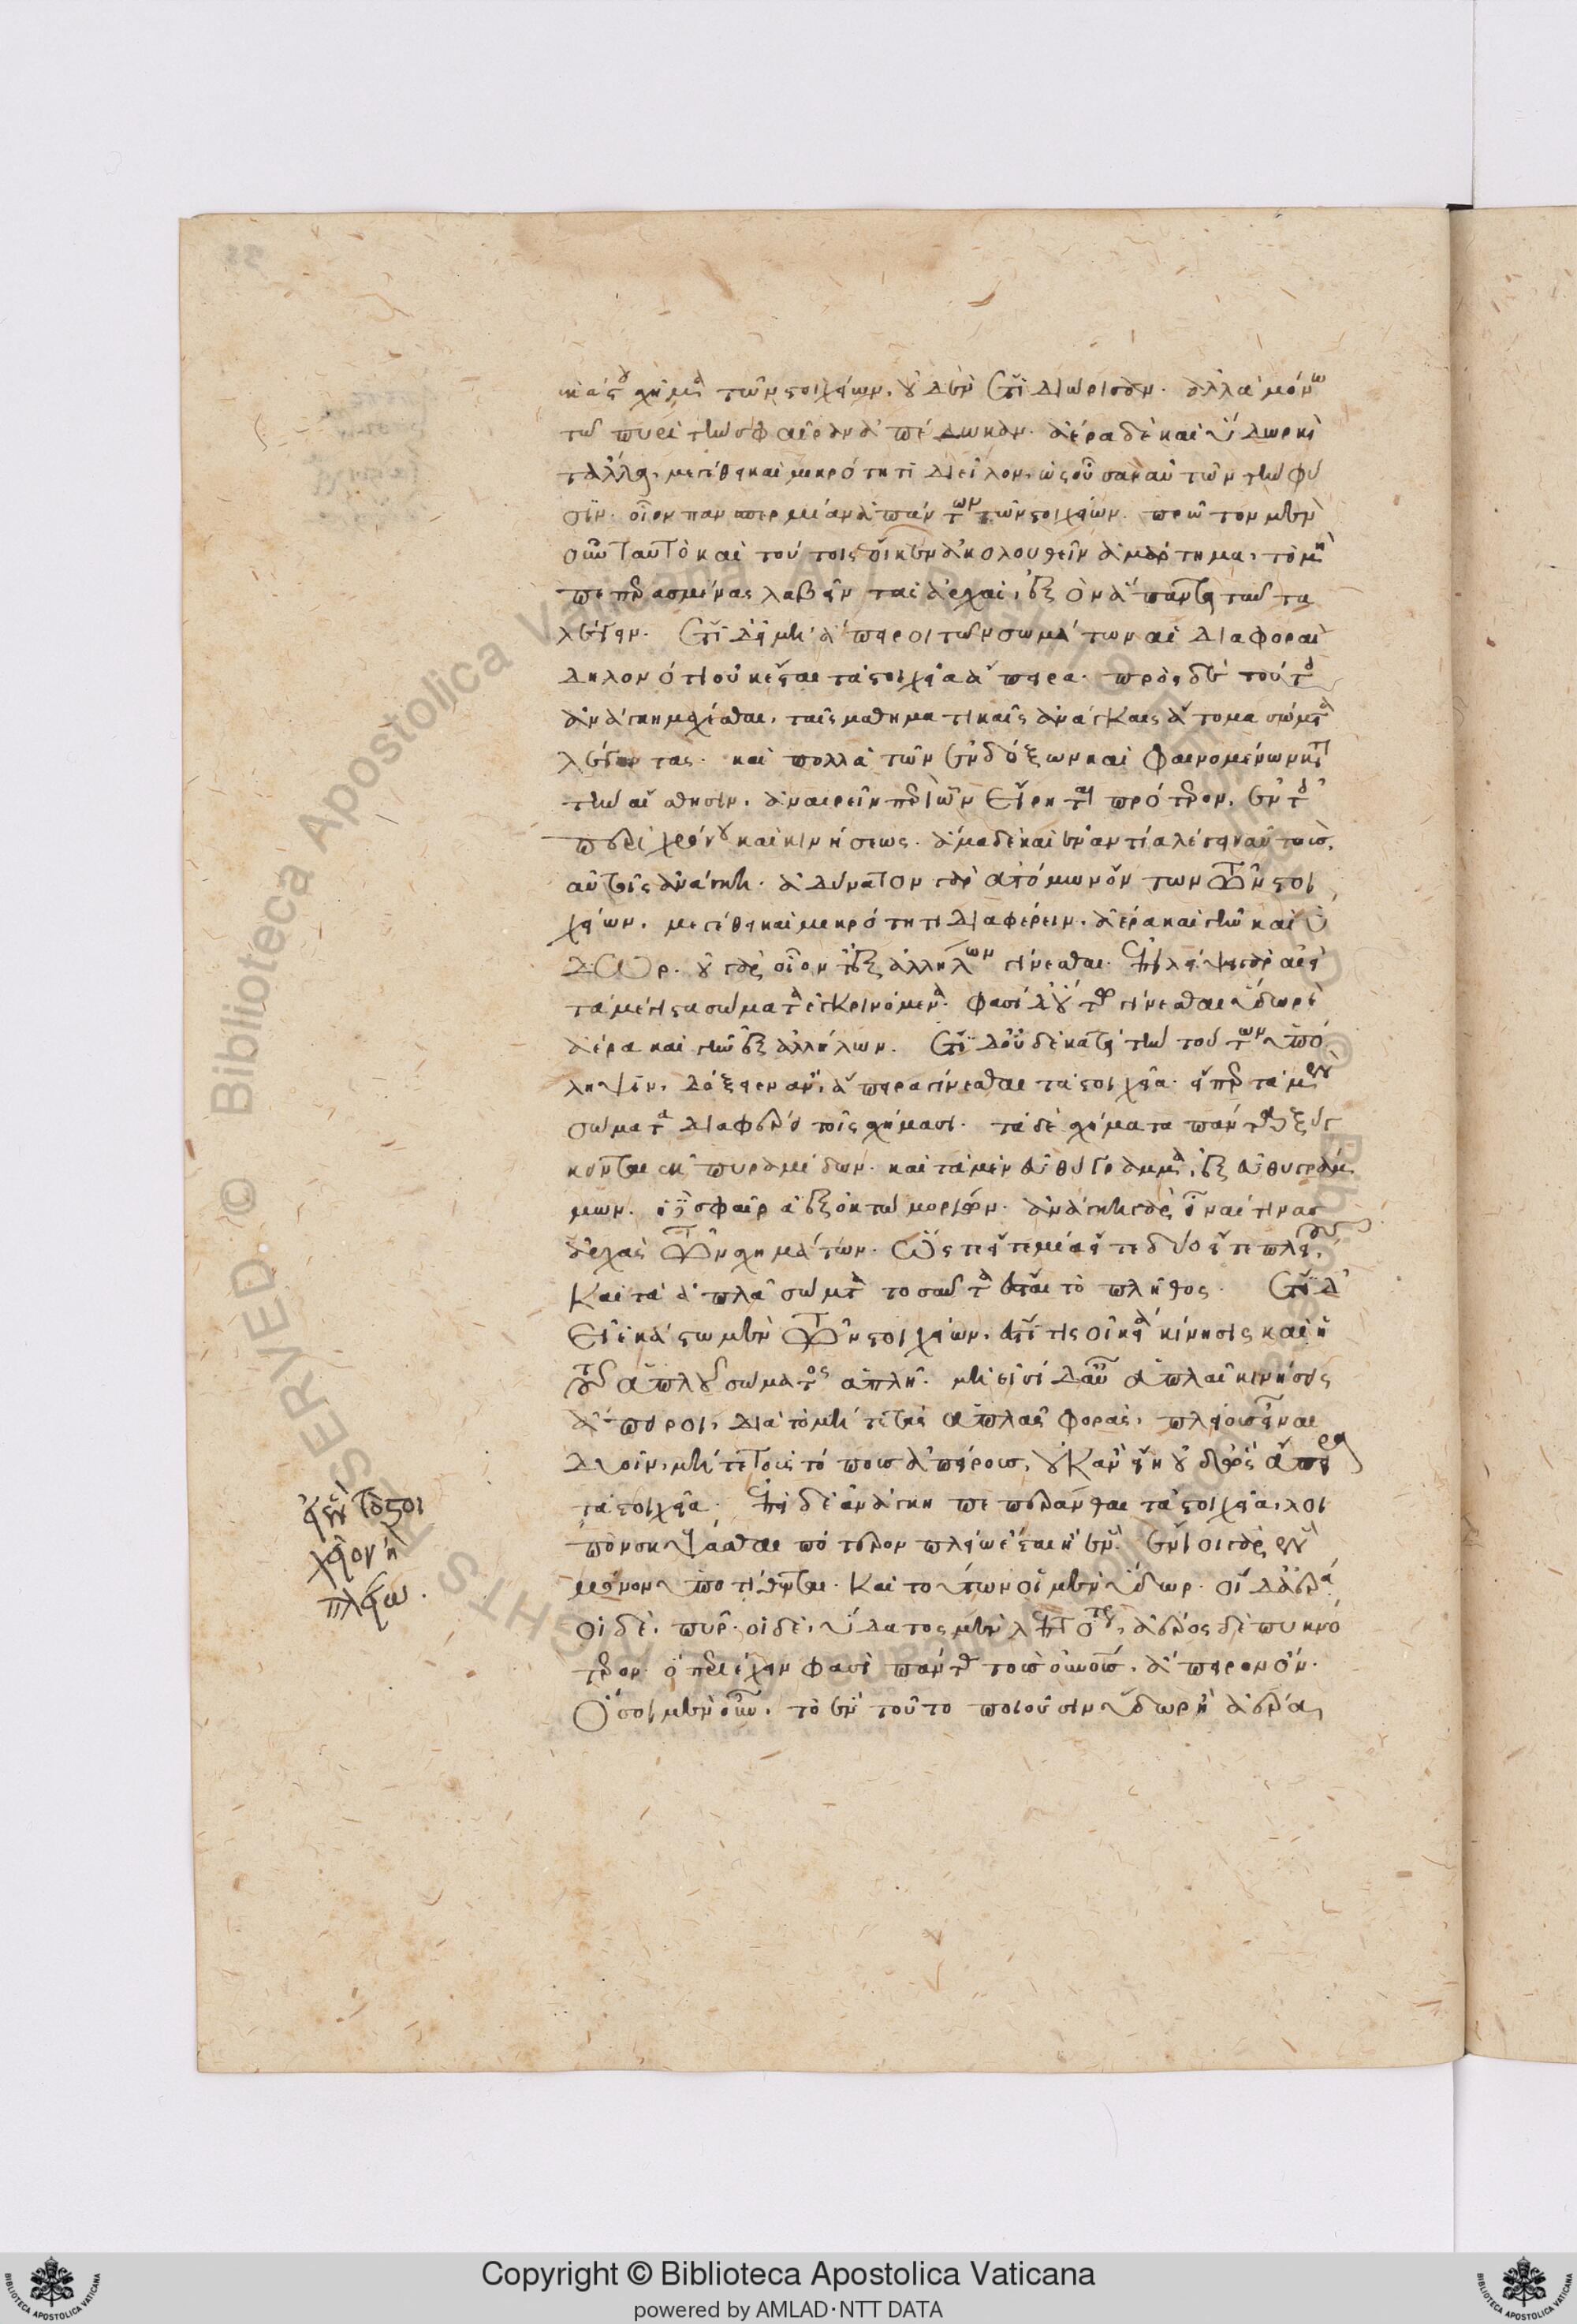 κάστου σχῆμα τῶν στοιχείων, οὐδὲν ἔτι διώρισαν. ἀλλὰ μόνω
τῶ πυρὶ τὴν σφαῖραν ἀπέδωκαν. ἀέρα δὲ καὶ ὕδωρ καὶ
τἄλλα, μεγέθει καὶ μικρότητι διεῖλον, ὡς οὖσαν αὐτῶν τὴν φύ
σιν. οἷον πανσπερμίαν ἁπάντων τῶν στοιχείων. πρῶτον μὲν
οὖν ταυτὸ καὶ τούτοις ἔοικεν ἀκολουθεῖν ἁμάρτημα, τὸ μὴ
πεπερασμένας λαβεῖν τὰς ἀρχὰς, ἐξὸν ἅπαντα ταυτὰ
λέγειν. ἔτι δ' εἰ μὴ ἄπειροι τῶν σωμάτων αἱ διαφοραὶ
δῆλον ὅτι οὐκ ἔσται τὰ στοιχεῖα ἄπειρα. πρὸς δὲ τούτοις
ἀνάγκη μάχεσθαι, ταῖς μαθηματικαῖς ἀνάγκαις ἄτομα σώματα
λέγοντας. καὶ πολλὰ τῶν ἐνδόξων καὶ φαινομένων κατὰ
τὴν αἴσθησιν, ἀναιρεῖν περὶ ὧν εἴρηται πρότερον, ἐν τοῖς
περὶ χρόνου καὶ κινήσεως. ἅμα δὲ καὶ ἐναντία λέγειν αὐτοὺς,
αὑτοῖς ἀνάγκη. ἀδύνατον γὰρ ἀτόμων ὄντων τῶν στοι
χείων, μεγέθει καὶ μικρότητι διαφέρειν, ἀέρα καὶ γῆν καὶ ὕ
δωρ. οὐ γὰρ οἷον τἐξ ἀλλήλων γίνεσθαι. ἐπιλείψει γὰρ ἀεὶ
τὰ μέγιστα σώματα ἐκκρινόμενα. φασὶ δ' οὕτω γίνεσθαι ὕδωρ καὶ
ἀέρα καὶ γῆν ἐξ ἀλλήλων. ἔτι δ' οὐδὲ κατὰ τὴν τούτων ὑπό
ληψιν, δόξειεν ἂν, ἄπειρα γίνεσθαι τὰ στοιχεῖα. εἴπερ τὰ μὲν
σώματα διαφέρει τοῖς σχήμασι. τὰ δὲ σχήματα πάντα σύγ
κειται ἐκ πυραμίδων. καὶ τὰ μὲν εὐθύγραμμα, ἐξ εὐθυγράμ
μων. ἡ δὲ σφαῖρα ἐξ ὀκτὼ μορίων. ἀνάγκη γὰρ εἶναί τινας
ἀρχὰς τῶν σχημάτων. ὥστε εἴτε μία εἴτε δύο εἴτε πλείους,
καὶ τὰ ἁπλᾶ σώματα τοσαῦτα ἔσται τὸ πλῆθος. ἔτι δ'
εἰ ἑκάστω μὲν τῶν στοιχείων, ἐστί τις οἰκεία κίνησις καὶ ἡ
τοῦ ἁπλοῦ σώματος ἁπλῆ. μὴ εἰσὶ δ' αἱ ἁπλαῖ κινήσεις
ἄπειροι, διὰ τὸ μήτε τὰς ἁπλᾶς φορὰς, πλείους εἶναι
δυοῖν, μήτε τοὺς τόπους ἀπείρους, οὐκ ἂν εἴη οὐδ' ὣς ἄπειρα
τὰ στοιχεῖα. ἐπεὶ δὲ ἀνάγκη πεπεράνθαι τὰ στοιχεῖα, λοι
πὸν σκέψασθαι πότερον πλείω ἔσται ἢ ἕν. ἔνιοι γὰρ ἓν
μόνον ὑποτίθενται. καὶ τούτων οἱ μὲν ὕδωρ. οἱ δ' ἀέρα.
οἱ δὲ, πῦρ. οἱ δὲ, ὕδατος μὲν λεπτότερον, ἀέρος δὲ πυκνό
τερον. ὃ περιέχειν φασὶ πάντας τοὺς οὐρανοὺς, ἄπειρον ὄν.
Ὅσοι μὲν οὖν, τὸ ἓν τοῦτο ποιοῦσιν ὕδωρ ἢ ἀέρα,
εἰ ἓν τὸ στοι
χεῖον ἢ
πλείω.